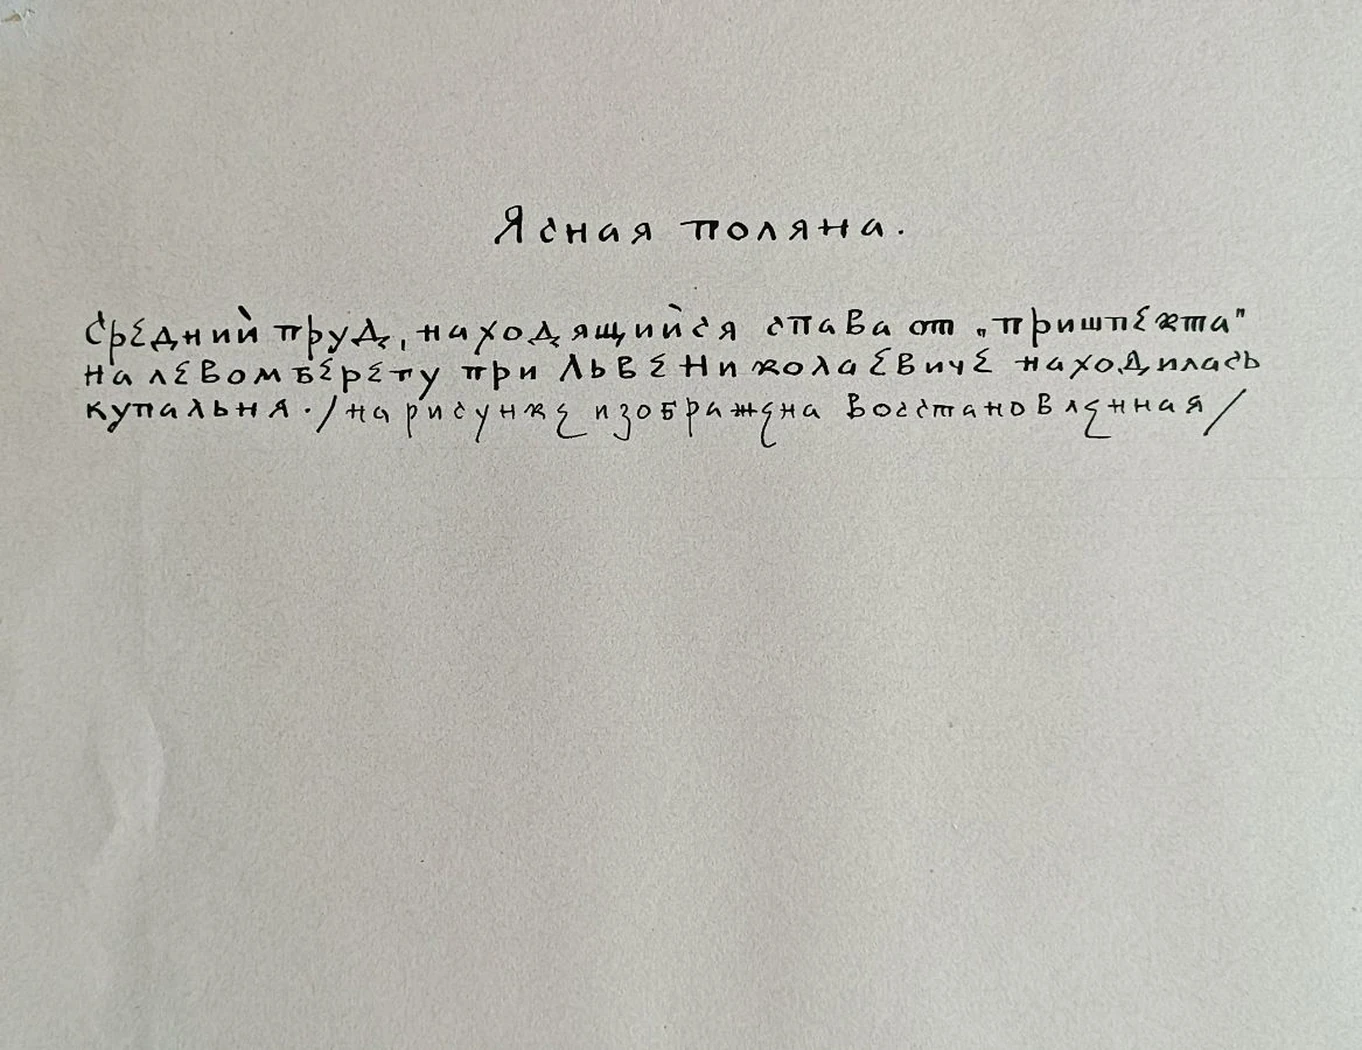 Ясная поляна.
Средний пруд, находящийся спава от „пришпекта"
на левом берегу при Льве Николаевиче находилась
купальня. /на рисунке изображена восстановленная/